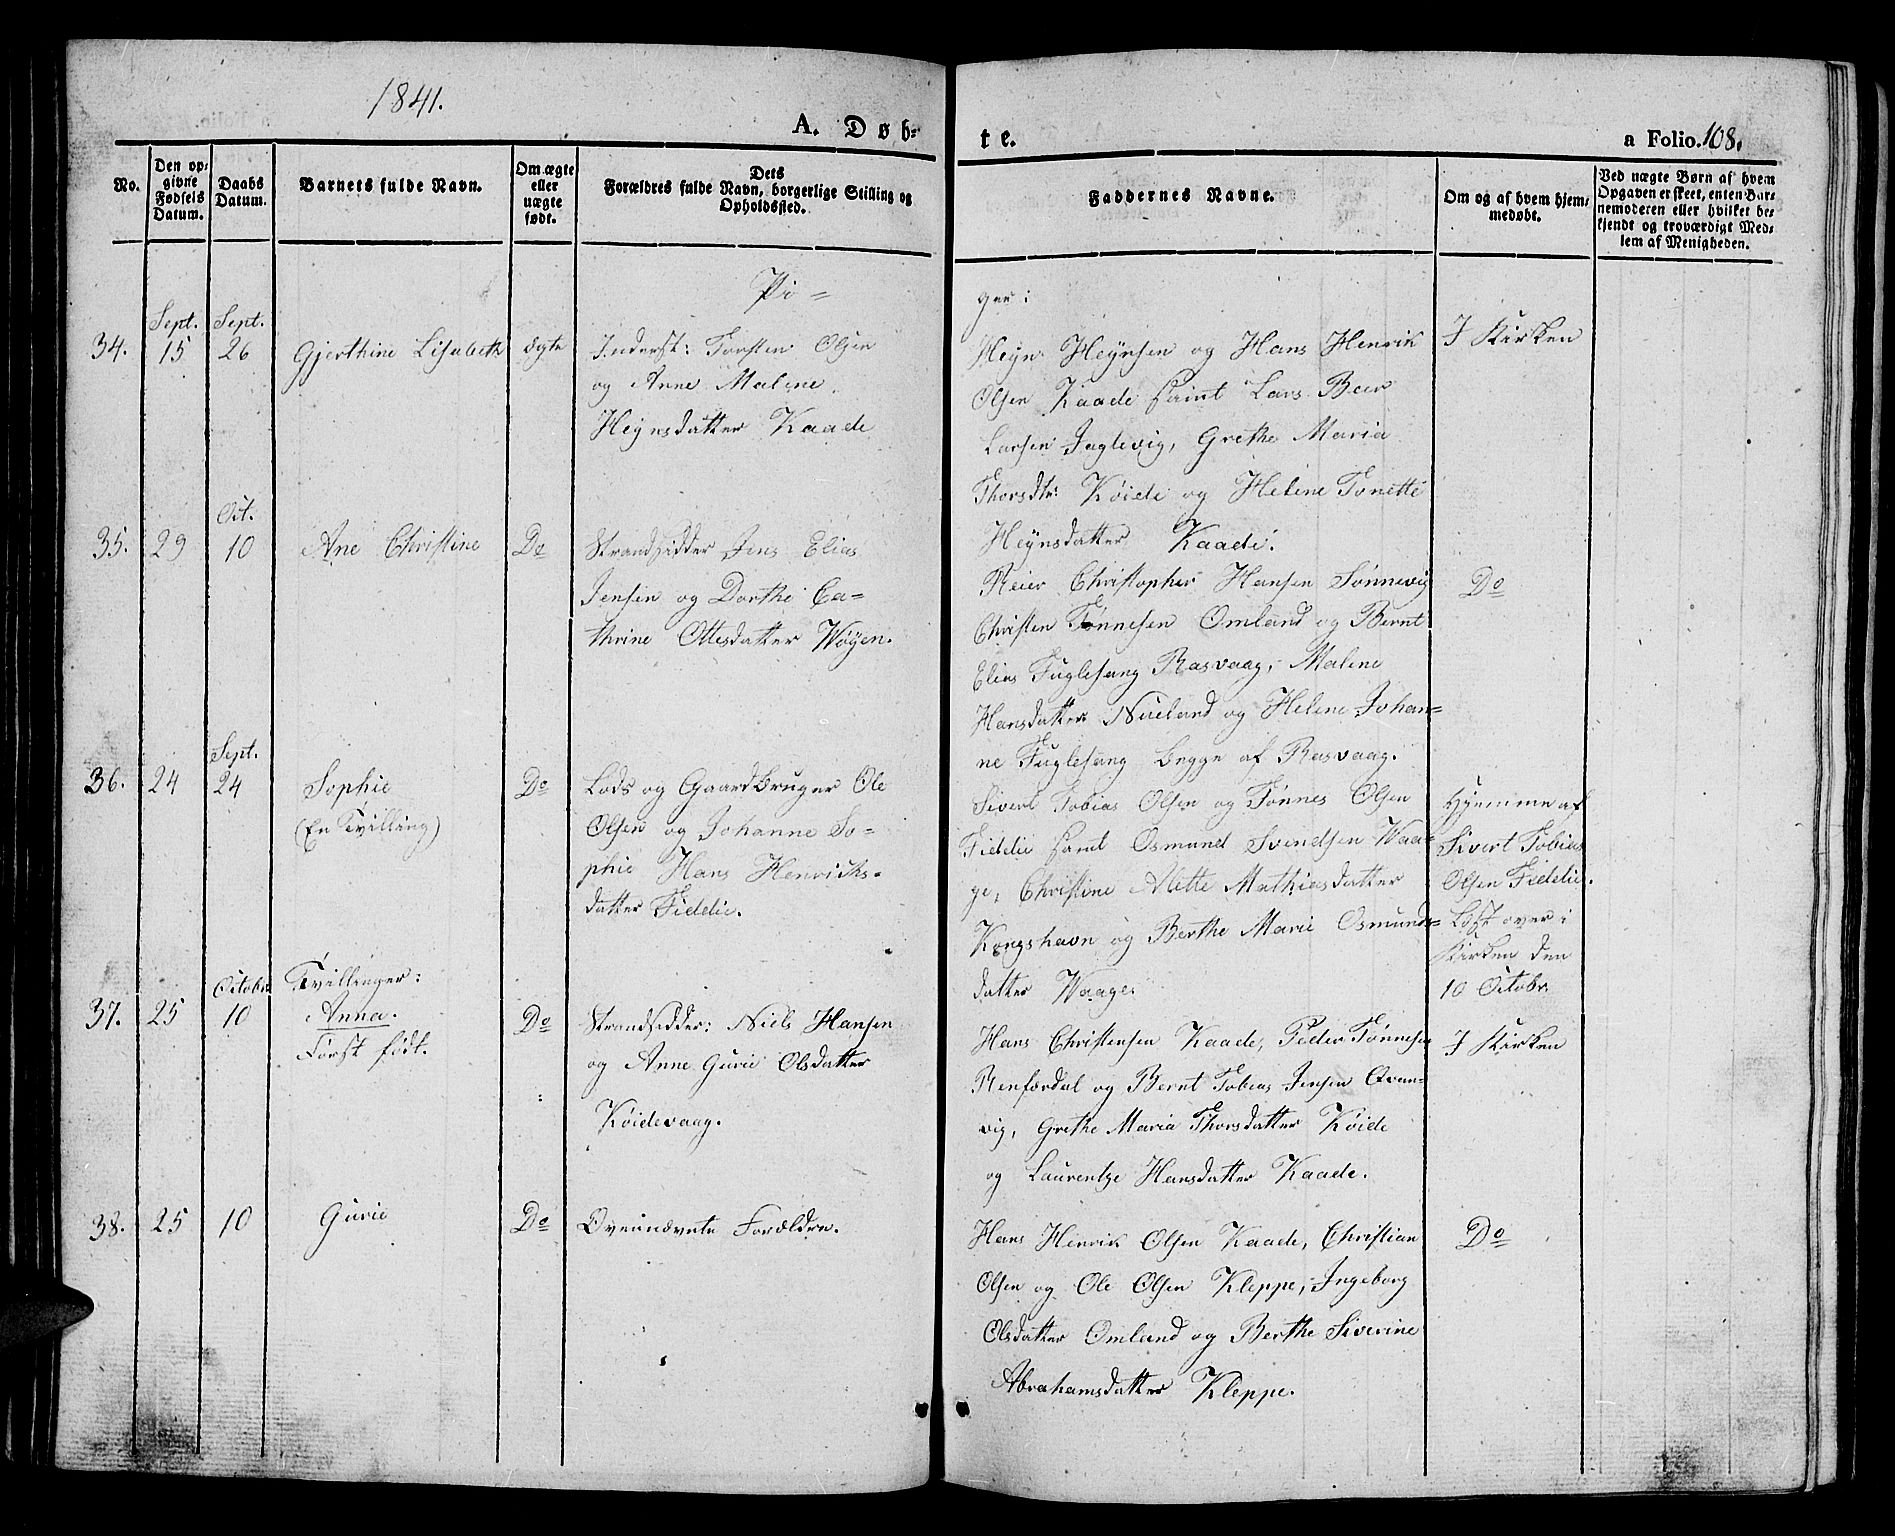 1841.
A. Døb-
te.
a Folio. 108.
No.
Den op-
givne
Fødsels
Datum.
Daabs
Datum.
Barnets fulde Navn.
Om ægte
eller
uægte
født.
Dets
Forældres fulde Navn, borgerlige Stilling og
Opholdssted.
Faddernes Navne.
Om og af hvem hjem-
medøbt.
Ved uægte Børn af hvem
Opgaven er skeet, enten Bar-
nemoderen eller hvilket be-
kjendt og troværdigt Med-
lem af Menigheden.
Pi=
ger:
34.
Sept.
15
Sept.
26
Gjerthine Lisabeth
ægte
Inderst: Torsten Olsen
og Anne Malene
Heynsdatter Kaade
Heyn Heynsen og Hans Henrik
Olsen Kaade samt Lars Beer
Larsen Jaglevig, Grethe Maria
Thorsdtr: Köide og Helene Tonette
Heynsdatter Kaade.
I Kirken
35.
29
Oct.
10
Ane Christine
Do
Strandsidder Jens Elias
Jensen og Dorthe Ca-
thrine Ottesdatter Wøyen.
Reier Christopher Hansen Sønnevig
Christen Tønnesen Omland og Bernt
Elias Fuglesang Rasvaag, Malene
Hansdatter Nueland og Helene Johan=
ne Fuglesang begge af Rasvaag.
Do
36.
24
Sept.
24
Sophie
(En Tvilling)
Do
Lods og Gaardbruger Ole
Olsen og Johanne So-
phie Hans Henrichs-
datter Fidelie.
Sivert Tobias Olsen og Tønnes Olsen
Fidelie samt Osmund Svendsen Waa-
ge, Christine Alette Mathiasdatter
Kongshavn og Berthe Marie Osmunds=
datter Waage.
Hjemme af
Sivert Tobias
Olsen Fidelie.
Læst over i
Kirken den
10 Octobr.
37.
25
Octobr
10
Tvillinger:
Anna.
Først født.
Do
Strandsidder: Niels Hansen
og Anne Gurie Olsdatter
Köidevaag.
Hans Christensen Kaade, Peder Tønnesen
Renfordal og Bernt Tobias Jensen Qvan-
vig, Grethe Maria Thorsdatter Köide
og Laurentze Hansdatter Kaade.
I Kirken
38.
25
10
Gurie
Do
Ovennævnte Forældre.
Hans Henrik Olsen Kaade, Christian
Olsen og Ole Olsen Kleppe, Ingeborg
Olsdatter Omland og Berthe Siverine
Abrahamsdatter Kleppe.
Do